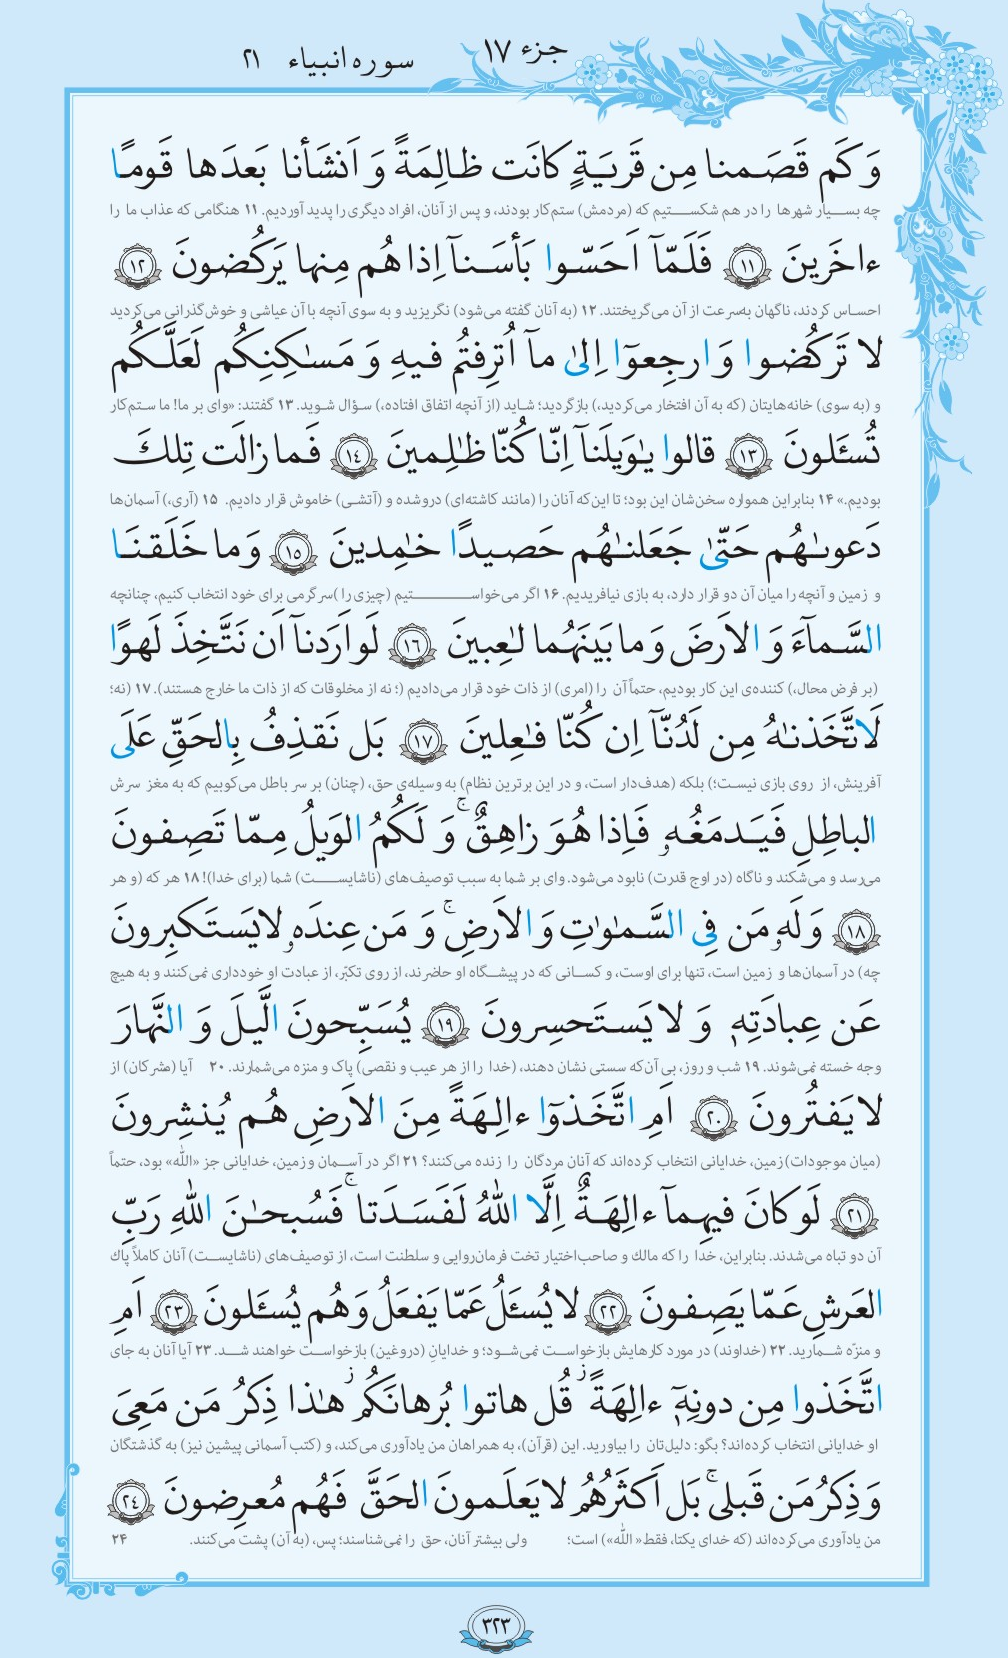 جزء ۱۷
سوره انبیاء ۲۱
وَ كَم قَصَمنا مِن قَریَةٍ كانَت ظالِمَةً وَ اَنشَأنا بَعدَها قَومًا
چه بسیار شهرها را در هم شکستیم که (مردمش) ستم‌کار بودند، و پس از آنان، افراد دیگری را پدید آوردیم. ۱۱ هنگامی که عذاب ما را
ءاخَرینَ ۱۱ فَلَمّآ اَحَسّوا بَأسَنآ اِذا هُم مِنها یَركُضونَ ۱۲
احساس کردند، ناگهان به‌سرعت از آن می‌گریختند. ۱۲ (به آنان گفته می‌شود) نگریزید و به سوی آنچه با آن عیاشی و خوش‌گذرانی می‌کردید
لا تَركُضوا وَ ارجِعوٓا اِلىٰ مآ اُترِفتُم فیهِ وَ مَسـٰكِنِكُم لَعَلَّكُم
و (به سوی) خانه‌هایتان (که به آن افتخار می‌کردید،) بازگردید؛ شاید (از آنچه اتفاق افتاده،) سؤال شوید. ۱۳ گفتند: «وای بر ما! ما ستم‌کار
تُسـَٔلونَ ۱۳ قالوا یـٰوَیلَنآ اِنّا كُنّا ظـٰلِمینَ ۱۴ فَما زالَت تِلكَ
بودیم.» ۱۴ بنابراین همواره سخن‌شان این بود؛ تا این‌که آنان را (مانند کاشته‌ای) دروشده و (آتشی) خاموش قرار دادیم. ۱۵ (آری،) آسمان‌ها
دَعوىٰهُم حَتّىٰ جَعَلنـٰهُم حَصیدًا خـٰمِدینَ ۱۵ وَ ما خَلَقنَا
و زمین و آنچه را میان آن دو قرار دارد، به بازی نیافریدیم. ۱۶ اگر می‌خواستیم (چیزی را) سرگرمی برای خود انتخاب کنیم، چنانچه
السَّمآءَ وَ الاَرضَ وَ ما بَینَهُما لـٰعِبینَ ۱۶ لَو اَرَدنآ اَن نَتَّخِذَ لَهوًا
(بر فرض محال،) کننده‌ی این کار بودیم، حتماً آن را (امری) از ذات خود قرار می‌دادیم (؛ نه از مخلوقات که از ذات ما خارج هستند). ۱۷ (نه؛
لَاتَّخَذنـٰهُ مِن لَدُنّآ اِن كُنّا فـٰعِلینَ ۱۷ بَل نَقذِفُ بِالحَقِّ عَلَى
آفرینش، از روی بازی نیست؛) بلکه (هدف‌دار است، و در این برترین نظام) به وسیله‌ی حق، (چنان) بر سر باطل می‌کوبیم که به مغز سرش
الباطِلِ فَیَدمَغُهۥ فَاِذا هُوَ زاهِقٌ ۚ وَ لَكُمُ الوَیلُ مِمّا تَصِفونَ
می‌رسد و می‌شکند و ناگاه (در اوج قدرت) نابود می‌شود. وای بر شما به سبب توصیف‌های (ناشایست) شما (برای خدا)! ۱۸ هر که (و هر
۱۸ وَ لَهۥ مَن فِى السَّمـٰوٰتِ وَ الاَرضِ ۚ وَ مَن عِندَهۥ لا یَستَكبِرونَ
چه) در آسمان‌ها و زمین است، تنها برای اوست، و کسانی که در پیشگاه او حاضرند، از روی تکبّر، از عبادت او خودداری نمی‌کنند و به هیچ
عَن عِبادَتِهٖ وَ لا یَستَحسِرونَ ۱۹ یُسَبِّحونَ الَّیلَ وَ النَّهارَ
وجه خسته نمی‌شوند. ۱۹ شب و روز، بی آن‌که سستی نشان دهند، (خدا را از هر عیب و نقصی) پاک و منزه می‌شمارند. ۲۰ آیا (مشرکان) از
لا یَفتُرونَ ۲۰ اَمِ اتَّخَذوٓا ءالِهَةً مِنَ الاَرضِ هُم یُنشِرونَ
(میان موجودات) زمین، خدایانی انتخاب کرده‌اند که آنان مردگان را زنده می‌کنند؟ ۲۱ اگر در آسمان و زمین، خدایانی جز «اللّٰه» بود، حتماً
۲۱ لَو كانَ فیهِمآ ءالِهَةٌ اِلَّا اللّٰهُ لَفَسَدَتا ۚ فَسُبحـٰنَ اللّٰهِ رَبِّ
آن دو تباه می‌شدند. بنابراین، خدا را که مالك و صاحب‌اختیار تخت فرمان‌روایی و سلطنت است، از توصیف‌های (ناشایست) آنان کاملاً پاك
العَرشِ عَمّا یَصِفونَ ۲۲ لا یُسـَٔلُ عَمّا یَفعَلُ وَ هُم یُسـَٔلونَ ۲۳ اَمِ
و منزّه شمارید. ۲۲ (خداوند) در مورد کارهایش بازخواست نمی‌شود؛ و خدایانِ (دروغین) بازخواست خواهند شد. ۲۳ آیا آنان به جای
اتَّخَذوا مِن دونِهٖٓ ءالِهَةً ۖ قُل هاتوا بُرهانَكُم ۖ هـٰذا ذِكرُ مَن مَعِىَ
او خدایانی انتخاب کرده‌اند؟ بگو: دلیل‌تان را بیاورید. این (قرآن)، به همراهان من یادآوری می‌کند، و (کتب آسمانی پیشین نیز) به گذشتگان
وَ ذِكرُ مَن قَبلى ۚ بَل اَكثَرُهُم لا یَعلَمونَ الحَقَّ فَهُم مُعرِضونَ ۲۴
من یادآوری می‌کرده‌اند (که خدای یکتا، فقط «اللّٰه») است؛ ولی بیشتر آنان، حق را نمی‌شناسند؛ پس، (به آن) پشت می‌کنند. ۲۴
۳۲۳